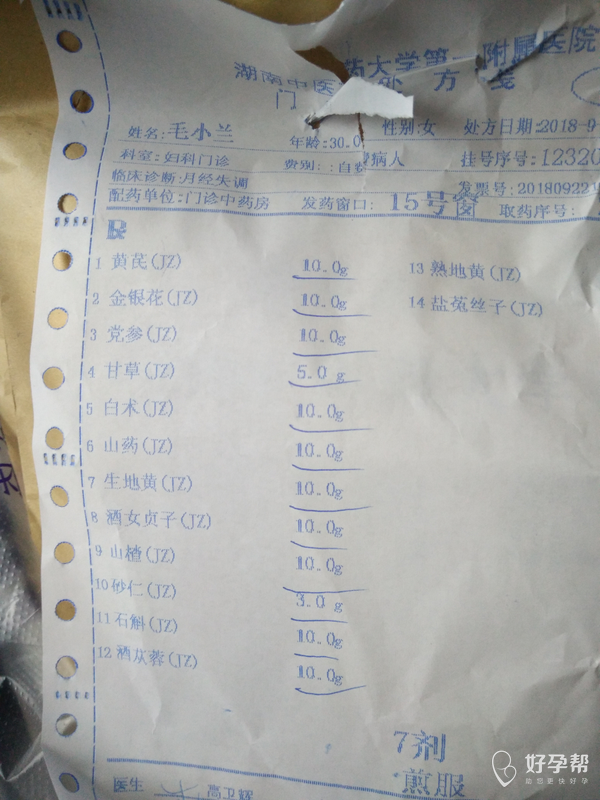 湖南中医药大学第一附属医院
门 处 方 笺
姓名:毛小兰 年龄:30.0 性别:女 处方日期:2018-9
科室:妇科门诊 费别::自 病人 挂号序号:12320
临床诊断:月经失调 发票号:20180922
配药单位:门诊中药房 发药窗口:15号窗 取药序号:
R
1 黄芪(JZ) 10.0g 13 熟地黄(JZ)
2 金银花(JZ) 10.0g 14 盐菟丝子(JZ)
3 党参(JZ) 10.0g
4 甘草(JZ) 5.0 g
5 白术(JZ) 10.0g
6 山药(JZ) 10.0g
7 生地黄(JZ) 10.0g
8 酒女贞子(JZ) 10.0g
9 山楂(JZ) 10.0g
10 砂仁(JZ) 3.0 g
11 石斛(JZ) 10.0g
12 酒苁蓉(JZ) 10.0g
7剂
煎服
医生 高卫辉
好孕帮
助您更快好孕